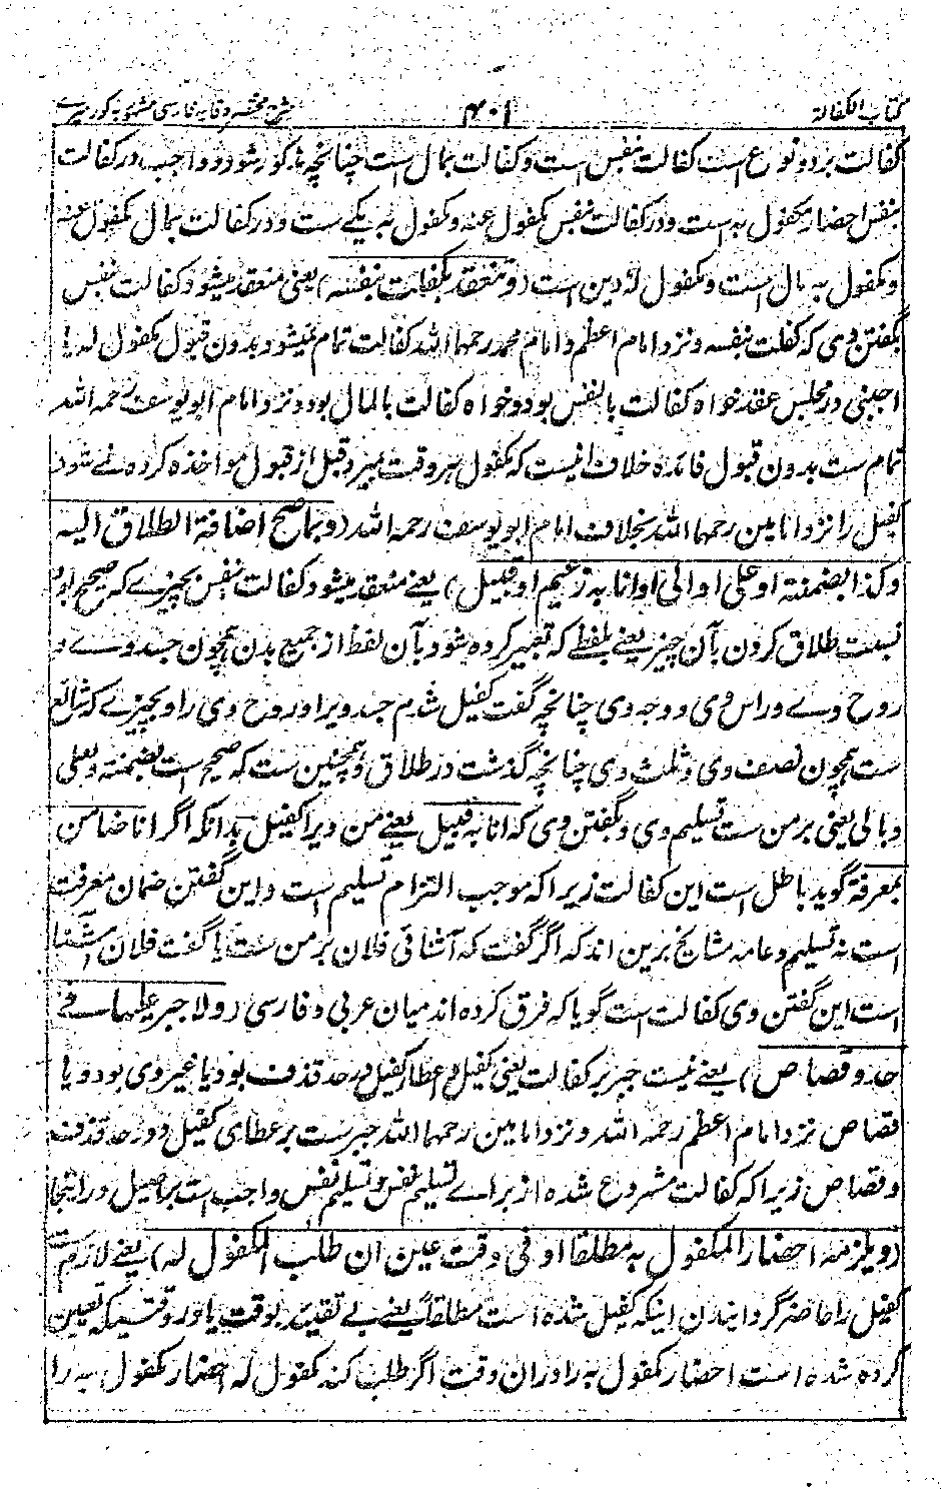 کتاب الکفالة
۴۰۱
شرح مختصر وقایه فارسی مشهور به کورمیری
کفالت بر دو نوع است کفالت بنفس است و کفالت بمال است چنانچه مذکور شود و واجب در کفالت
بنفس احضار مکفول به است و در کفالت بنفس مکفول عنه و مکفول به یکی ست و در کفالت بمال مکفول عنه
و مکفول به مال است و مکفول له دین است (و تنعقد بکفلت بنفسه) یعنی منعقد میشود کفالت بنفس
بگفتن وی که کفلت بنفسه و نزد امام اعظم و امام محمد رحمهما الله کفالت تمام نمیشود بدون قبول مکفول له یا
اجنبی در مجلس عقد خواه کفالت بالنفس بود و خواه کفالت بالمال بود و نزد امام ابو یوسف رحمه الله
تمام ست بدون قبول فائده خلاف اینست که مکفول هر وقت بمیرد قبل از قبول مواخذه کرده نمی شود
کفیل را نزد امامین رحمهما الله بخلاف امام ابو یوسف رحمه الله (و بما صح اضافة الطلاق الیه
وکذا بضمنته او علی او الی او انا به زعیم او قبیل) یعنی منعقد میشود کفالت بنفس بچیزے که صحیح بود
نسبت طلاق کردن بآن چیز یعنی بلفظے که تعبیر کرده شود بآن لفظ از جمیع بدن همچون جسد وے و
روح وے و راس وی و وجه وی چنانچه گفت کفیل شدم جسد ویرا و روح وی را و بچیزے که شائع
ست همچون نصف وی و ثلث وی چنانچه گذشت در طلاق و همچنین ست که صحیح است بضمنته و بعلی
و بالی یعنی بر من ست تسلیم وی و بگفتن وی که انا به قبیل یعنی من ویرا کفیل بدانکه اگر انا ضامن
بمعرفة گوید باطل است این کفالت زیرا که موجب التزام تسلیم است و این گفتن ضمان معرفت
است نه تسلیم و عامه مشائخ برین اند که اگر گفت که آشنائی فلان بر من ست یا گفت فلان آشنا
است این گفتن وی کفالت است گویا که فرق کرده اند میان عربی و فارسی (ولا جبر علیها فی
حد و قصاص) یعنی نیست جبر بر کفالت یعنی کفیل و اعطار کفیل در حد قذف بود یا غیر وی بود و یا
قصاص نزد امام اعظم رحمه الله و نزد امامین رحمهما الله جبر ست بر عطای کفیل و در حد قذف
و قصاص زیرا که کفالت مشروع شده از براے تسلیم نفس و تسلیم نفس واجب است بر اصیل در اینجا
(ویلزمه احضار المکفول به مطلقا او فی وقت عین ان طلب المکفول له) یعنی لازم ست
کفیل را حاضر گردانیدن اینکه کفیل شده است مطلقا یعنی بے تقدیر بوقت یا در وقتیکه تعیین
کرده شده است احضار مکفول به را در ان وقت اگر طلب کند مکفول له احضار مکفول به را